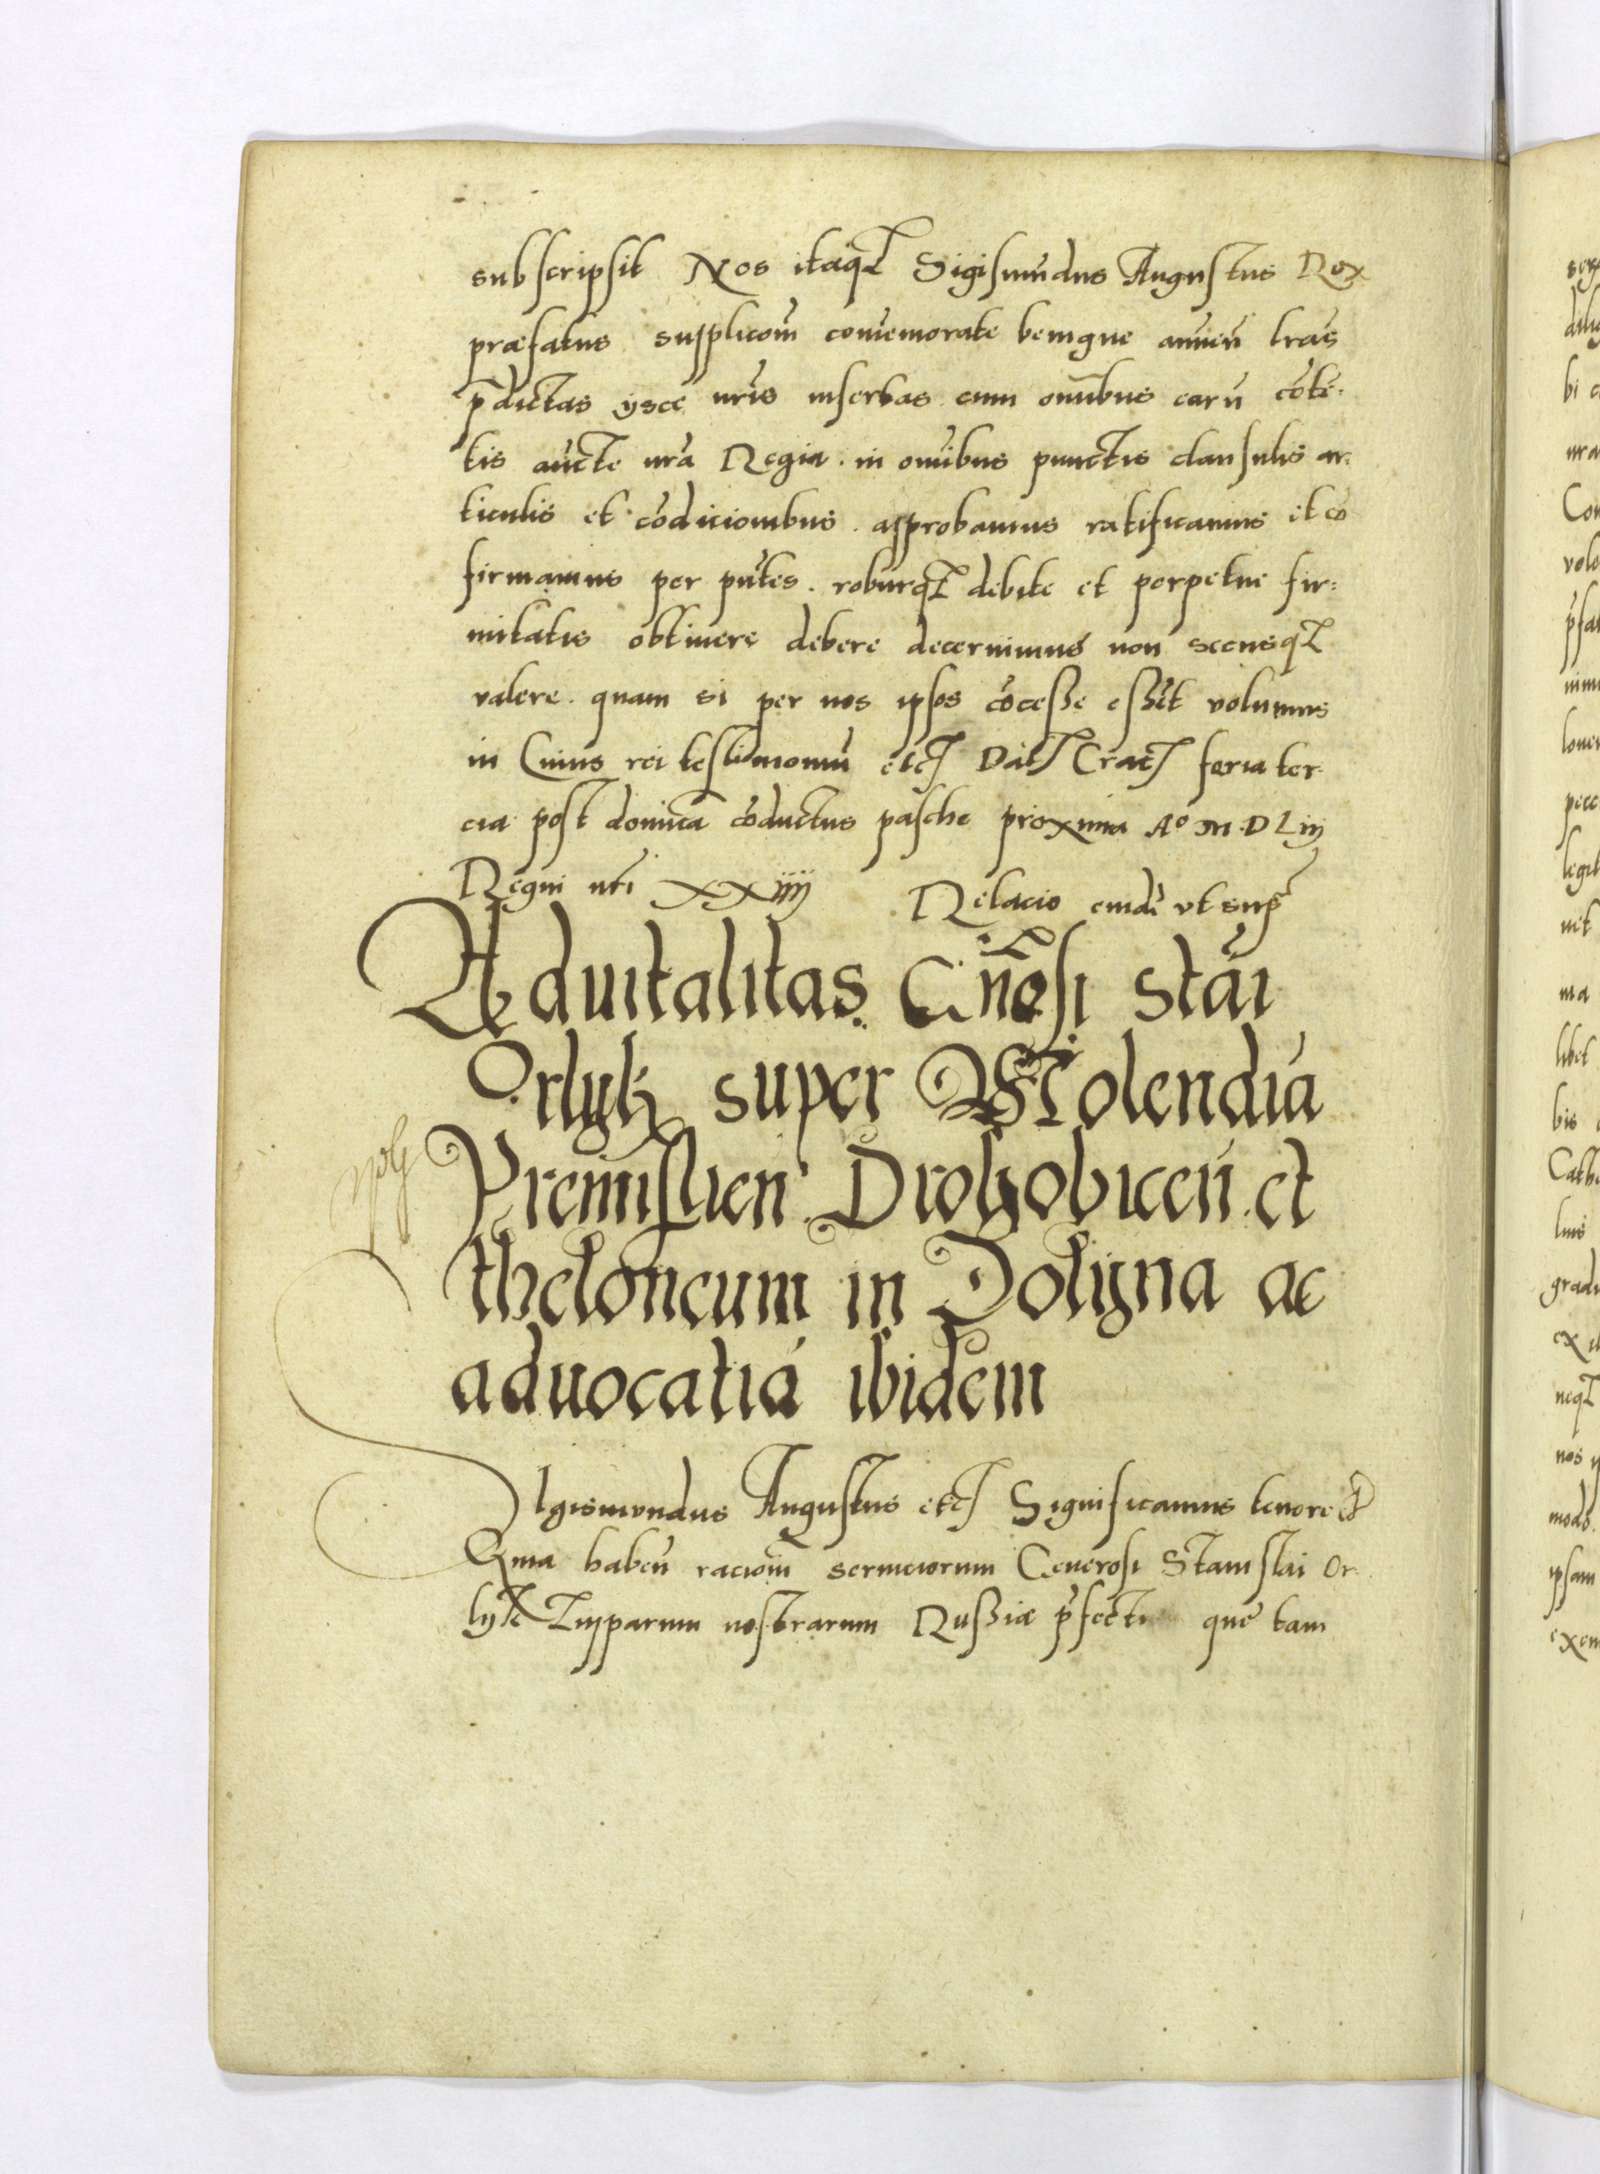 subscripsit Nos itaqʒ Sigismūdus Augustus Rex
præfatus suppliconi comemorate benigne añuen̄ lr̄as
p̄dictas ysce nr̄is insertas cum om̄ibus earū cōtē-
tis auc̄te nr̄a Regia . in om̄ibus punctis clausulis ar-
ticulis et cōdicionibus . approbamus ratificamus et cō
firmamus per pn̄tes . roburqʒ debite et perpetue fir=
mitatis obtinere debere decernimus non secusqʒ
valere . quam si per nos ipsos cōcesse essēt volumus
in Cuius rei testimoniū etc Dat Crac feria ter-
cia post domīca cōductus pasche proxima Aº M D Liij
Regni nr̄i XXiiij Relacio eiusdē vt sup̄
Aduitalitas Gn̄osi Stāi
Orlyk super Molendīa
Premislien̄ . Drohobicen̄ . et
theloneum in Dolyna ac
aduocatiā ibidem
Sigismvndus Augustus etc Significamus tenore etc
Quia haben̄ racioīm seruiciorum Generosi Stanislai Or-
lyk Zupparum nostrarum Russiæ p̄fecti que tam